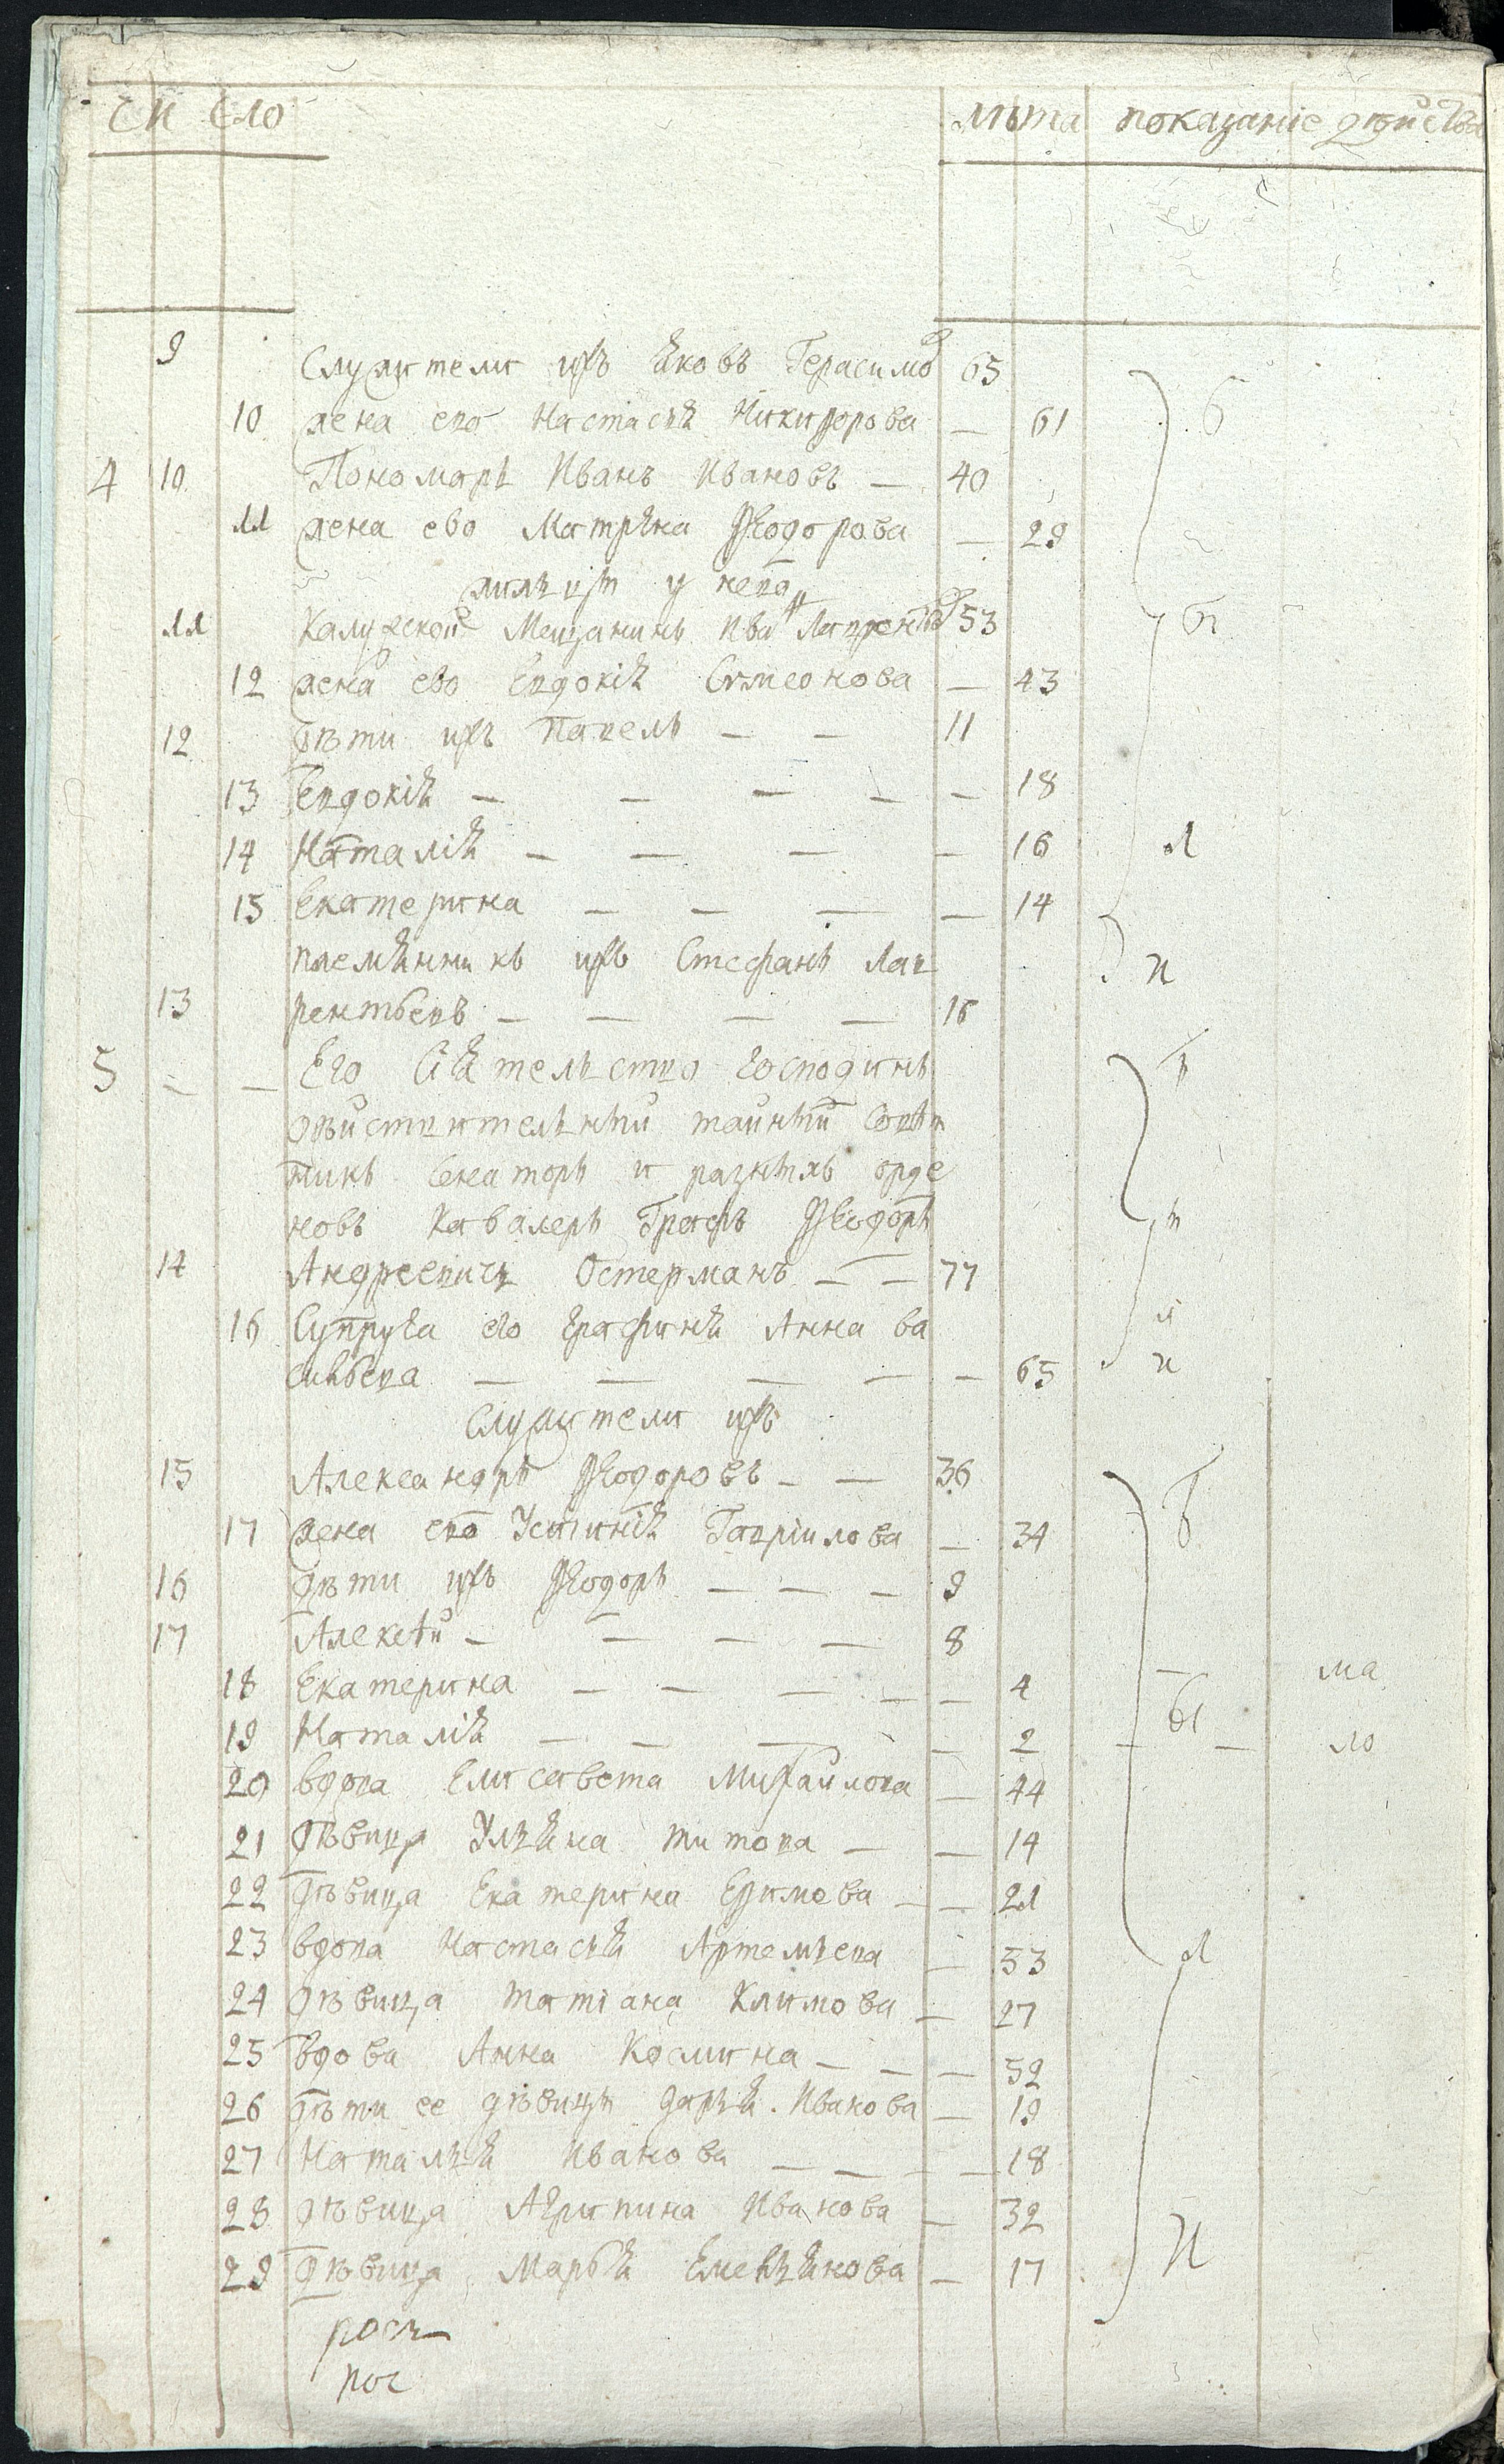 чи сло лѣта показаніе дѣйства
9 Служители ихъ Яковъ Герасимо в 65
10 жена ево Настасья Никифорова — 61 б
4 10 Пономарь Иванъ Ивановъ — 40
11 жена ево Матрена Ѳеодорова — 29
жильцы у нево
11 Калужской Мещанинъ Ива н Лавренть 53 ы
12 жена ево Евдокія Симеонова — 43
12 дѣти ихъ Павелъ — — 11
13 Евдокія — — — — — 18
14 Наталія — — — — 16 л
15 Екатерина — — — — 14
племянникъ ихъ Стефанъ Лав и
13 рентьевъ — — — — 16
5 — — Его Сіятельство Господинъ
дѣйствительный тайный Совѣт
никъ Сенаторъ и разныхъ орде
новъ Кавалеръ Графъ Ѳеодоръ
14 Андреевичь Остерманъ — — 77
16 Супруга его Графиня Анна Ва
сильева — — — — — 65 и
Служители ихъ
15 Александръ Ѳеодоровъ — — 36
17 жена ево Устинія Гавріилова — 34 б
16 дѣти ихъ Ѳеодоръ — — — 9
17 Алексѣй — — — — 8
18 Екатерина — — — — — 4 — ма
19 Наталія — — — — 2 — ы — ло
20 вдова Елисавета Михайлова — 44
21 дѣвица Ульяна Титова — — 14
22 дѣвица Екатерина Ефимова — — 21
23 вдова Настасья Артемьева — 53 л
24 дѣвица Татіана Климова — 27
25 вдова Анна Космина — — — 52
26 дѣти ее дѣвицы Дарья Иванова — 19
27 Наталья Иванова — — — — 18
28 дѣвица Агрипина Иванова — 32
29 дѣвица Марья Емельянова — 17 и